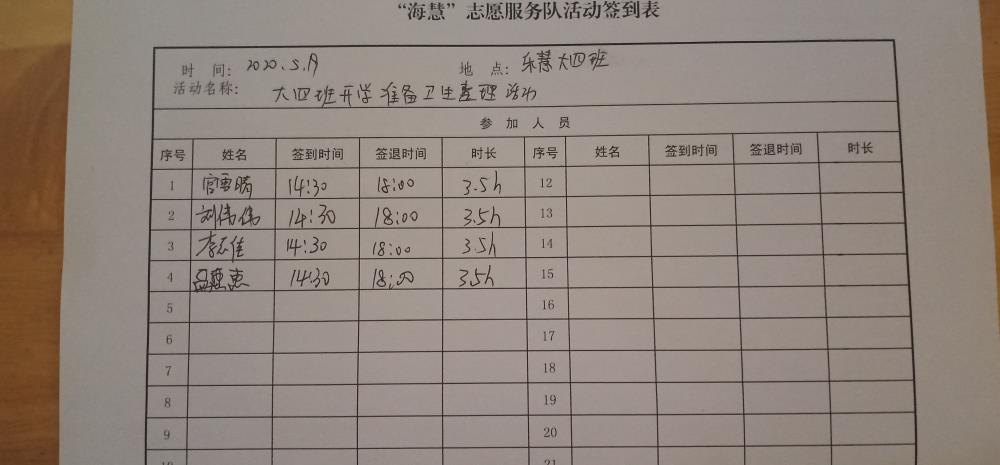 “海慧”志愿服务队活动签到表
时 间： 2020.5.19 地 点： 乐慧大四班
活动名称： 大四班开学准备卫生整理活动
参 加 人 员
序号 姓名 签到时间 签退时间 时长 序号 姓名 签到时间 签退时间 时长
1 官雪晴 14:30 18:00 3.5h 12
2 刘伟伟 14:30 18:00 3.5h 13
3 李石佳 14:30 18:00 3.5h 14
4 14:30 18:00 3.5h 15
5 16
6 17
7 18
8 19
9 20
10 21